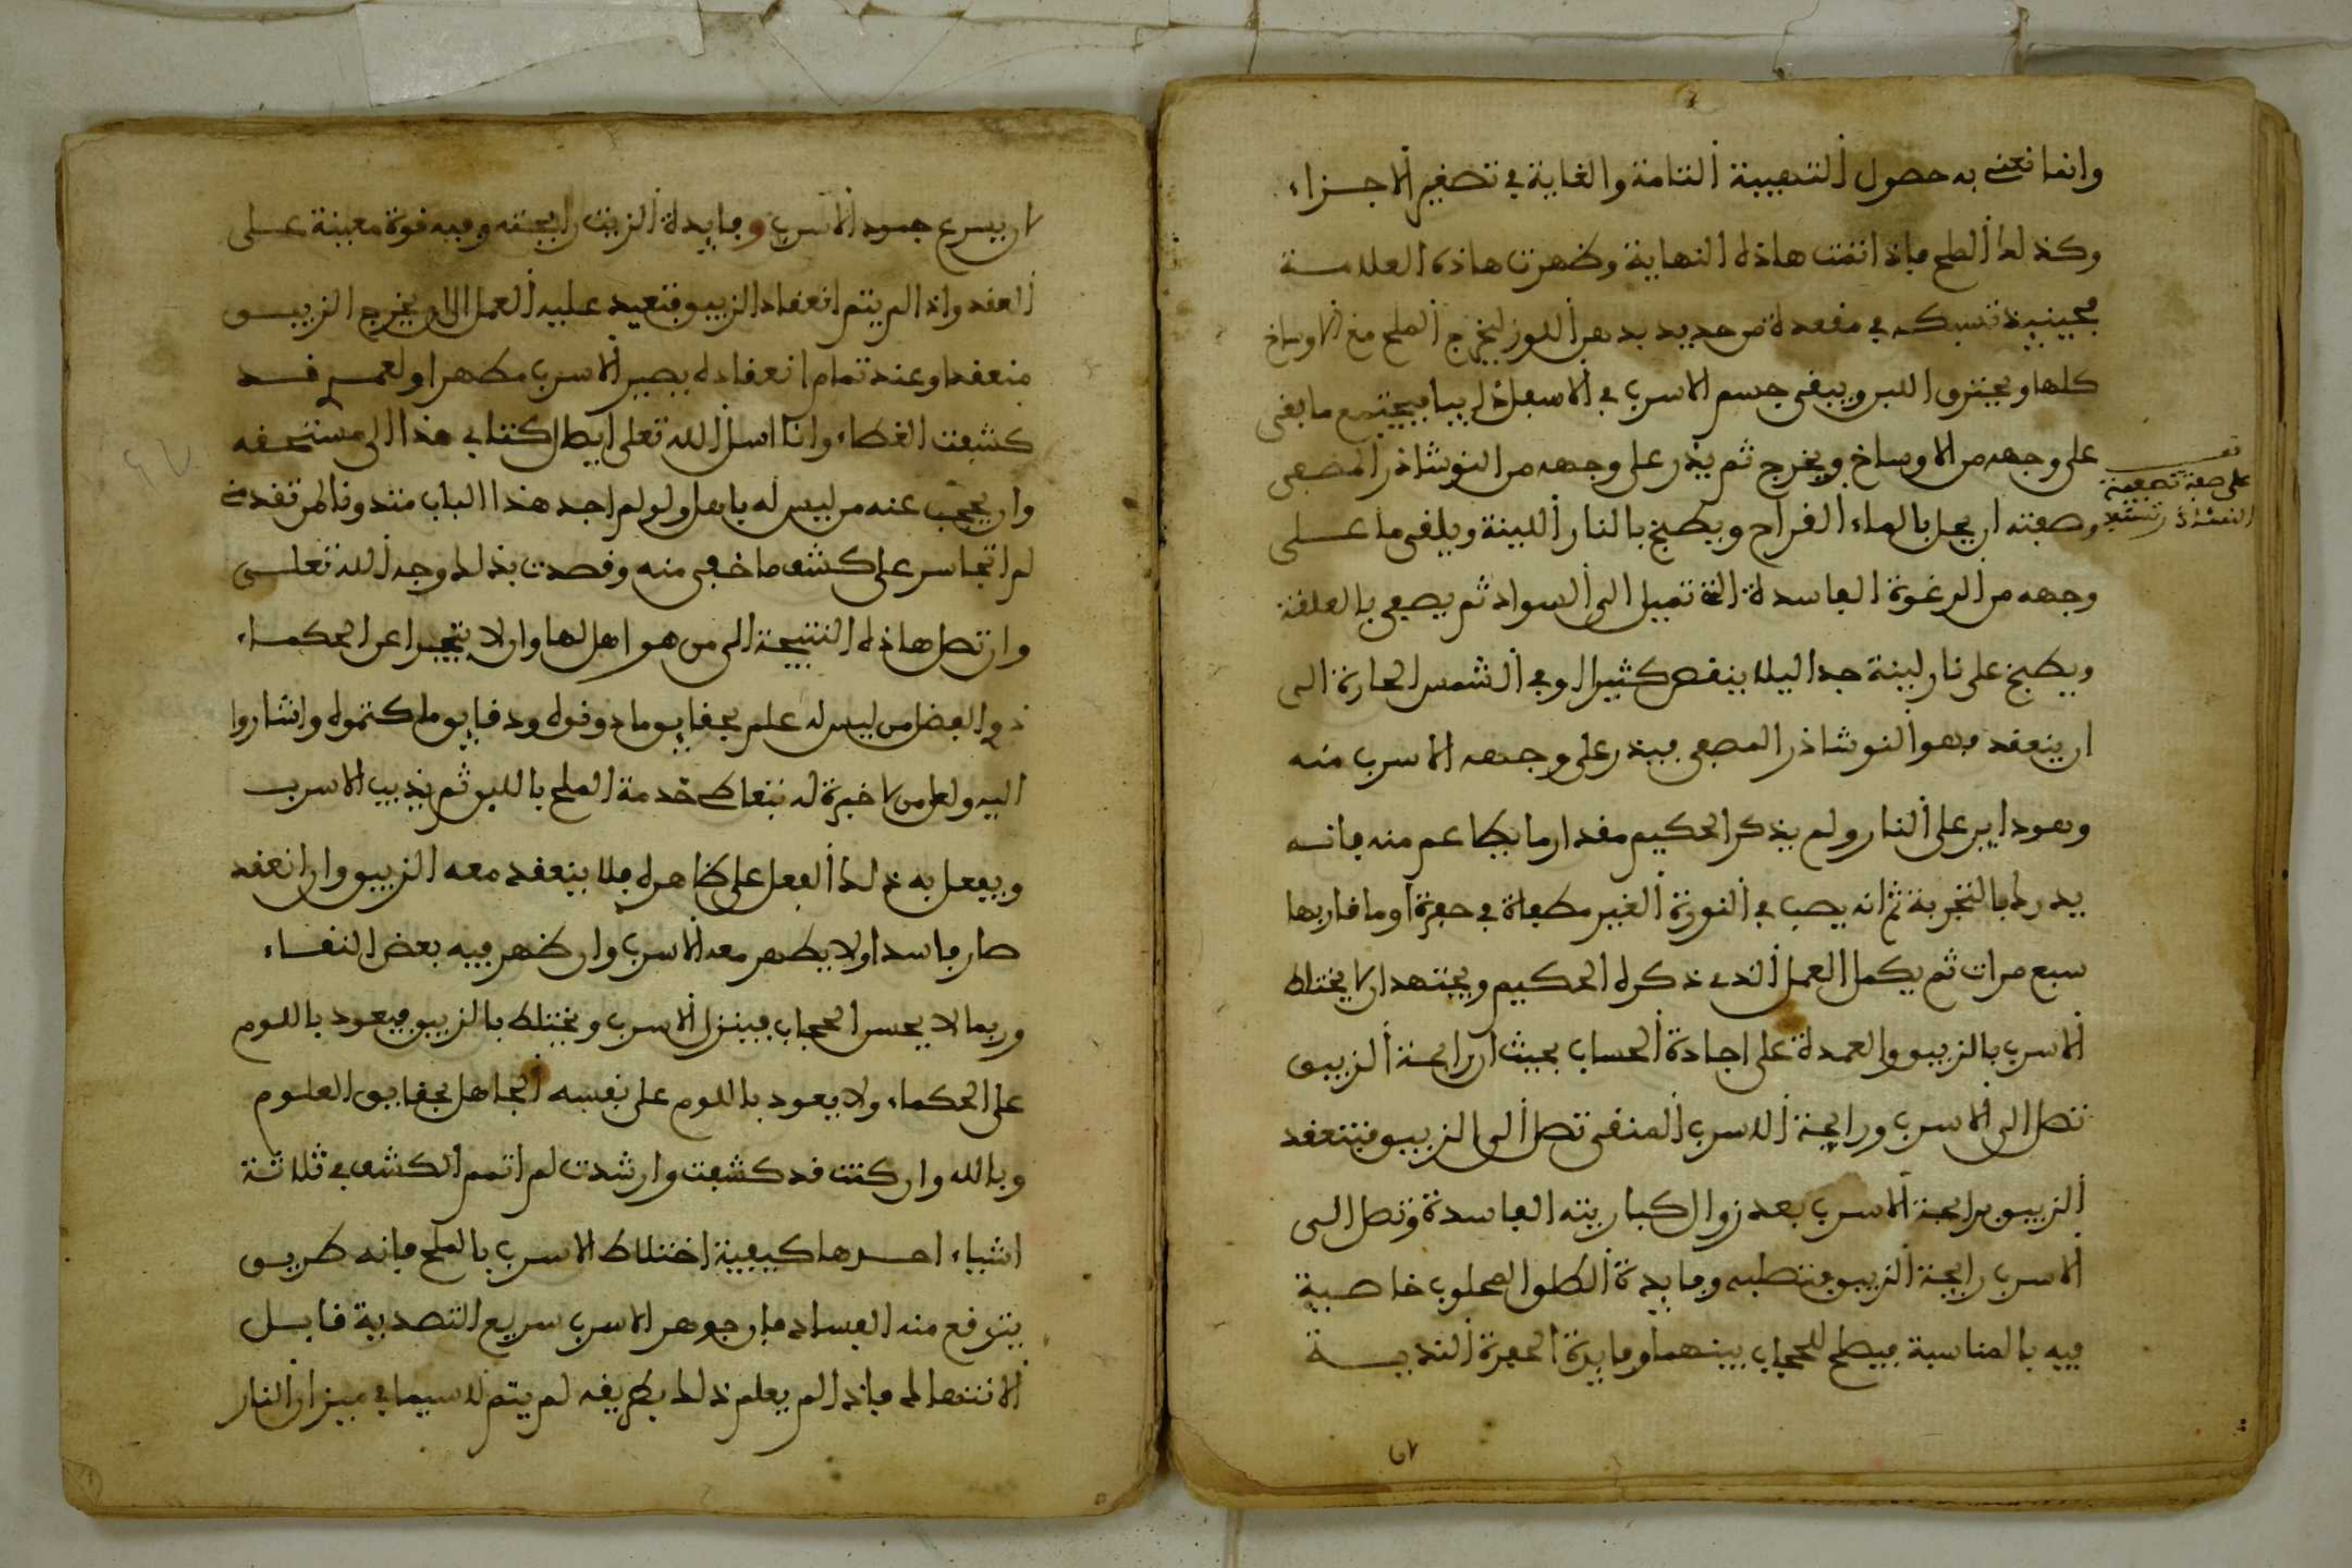 وانما نعنى به حصول التهبية التامة والغاية في تصغير الاجزاء
وكذلك الملح فاذا تمت هاذه النهاية وظهرت هاذه العلامة
فحينيذ تسبكه في مغهدة من حديد بدهن اللوز ليخرج الملح مع الاوساخ
كلها ويحترق اللبن ويبقى جسم الاسرب في الاسفل ذايبا فيجتمع ما بقى
على وجهه من الاوساخ ويخرج ثم يذر على وجهه من النوشاذر المصفى
على صفة تصفية
النوشاذر
وصفته ان يحل بالماء القراح ويطبخ بالنار اللينة ويلقى ما على
وجهه من الرغوة الفاسدة التي تميل الى السواد ثم يصفى بالعلقة
ويطبخ على نار لينة جدا ليلا ينقص كثيرا او في الشمس الحارة الى
ان ينعقد فهو النوشاذر المصفى فيذر على وجهه الاسرب منه
وهو داير على النار ولم يذكر الحكيم مقدار ما يطاعم منه فانه
يدرك بالتجربة ثم انه يصب في النورة الغير مطفاة في حفرة او ما قاربها
سبع مرات ثم يكمل العمل الذي ذكره الحكيم ويجتهد ان لا يختلط
الاسرب بالزيبق والعمدة على اجادة الحساب بحيث ان رايحة الزيبق
تصل الى الاسرب ورايحة الاسرب المنقى تصل الى الزيبق فينعقد
الزيبق برايحة الاسرب بعد زوال كباريته الفاسدة وتصل الى
الاسرب رايحة الزيبق فتصلبه وفايدة الطلق المحلوب خاصية
فيه بالمناسبة فيصلح للحجاب بينهما وفايدة الحفرة الندية
لان يسرع جمود الاسرب وفايدة الزيت رايحته وفيه قوة معينة على
العقد واذا لم يتم انعقاد الزيبق فتعيد عليه العمل الى ان يخرج الزيبق
منعقدا وعند تمام انعقاده يصير الاسرب مطهرا ولعمري قد
كشفت الغطاء وانا اسل الله تعلى ايصال كتابي هذا الى مستحقه
وان يحجب عنه من ليس له باهل ولو لم اجد هذا الباب مندونا لمن تقدمني
لم اتجاسر على كشف ما خفي منه وقصدت بذلك وجه الله تعلى
وان تصل هاذه النتيجة الى من هو اهل لها وان لا يتجرا عن الحكماء
ذوي الفضل من ليس له علم بحقايق ما دونوه ودقايق ما كتموه واشاروا
اليه ولعل من لا خبرة له يتعاطى خدمة الملح باللبن ثم يذيب الاسرب
ويفعل به ذلك الفعل على ظاهره فلا ينعقد معه الزيبق وان انعقد
صار فاسدا ولا يطهر معه الاسرب وان ظهر فيه بعض النقاء
وربما لا يحسن الحجاب فينزل الاسرب ويختلط بالزيبق فيعود باللوم
على الحكماء ولا يعود باللوم على نفسه الجاهل بحقايق العلوم
وبالله وان كنت قد كشفت وارشدت لم اتمم الكشف في ثلاثة
اشياء احدها كيفية اختلاط الاسرب بالملح فانه طريق
يترفع منه الفساد فان جوهر الاسرب سريع التصدية قابل
الانتهاك فاذا لم يعلم ذلك بطريقه لم يتم لاسيما في ميزان النار